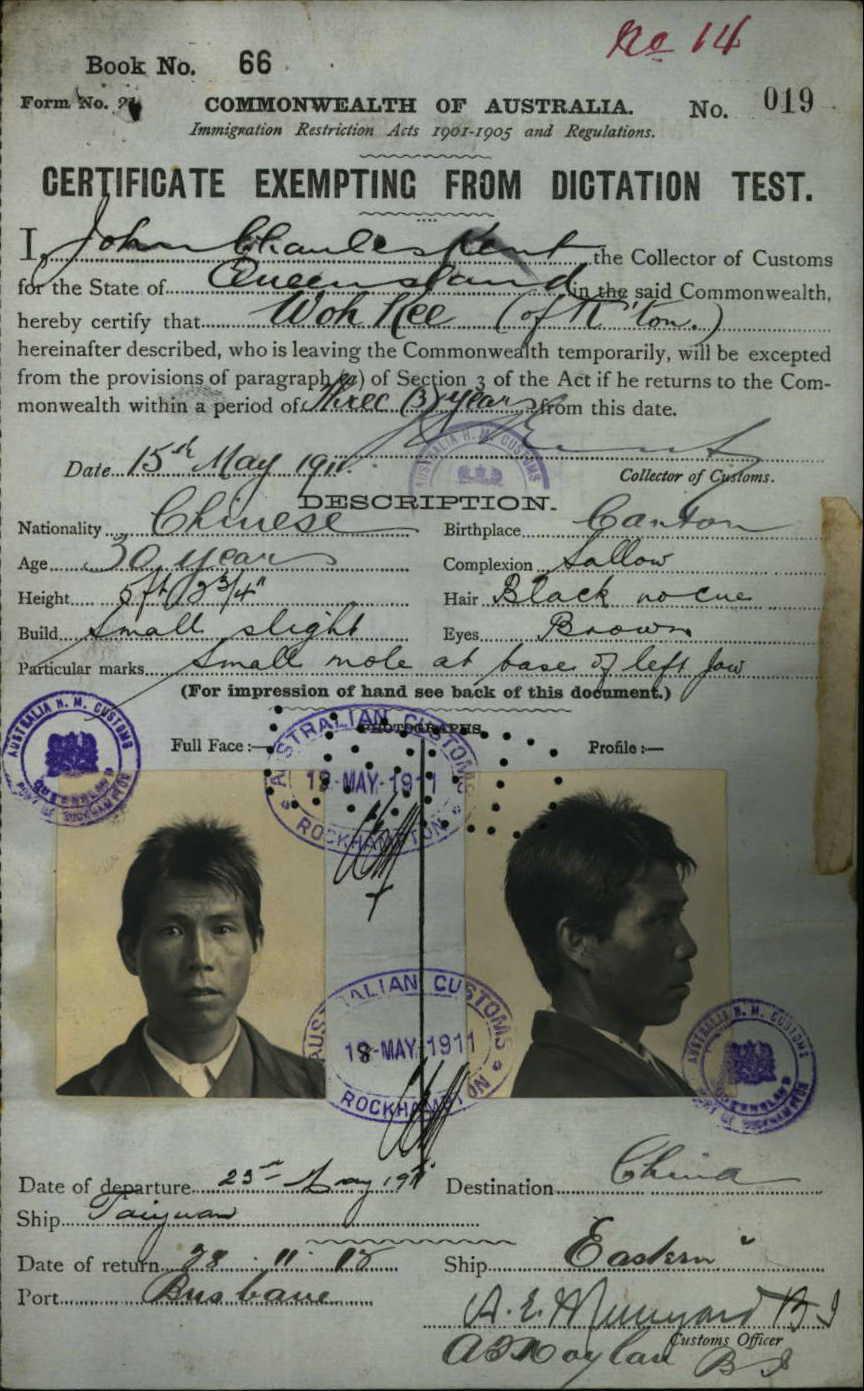 No 14
Book No. 66
Form No. COMMONWEALTH OF AUSTRALIA. No. 019
Immigration Restriction Acts 1901-1905 and Regulations.
CERTIFICATE EXEMPTING FROM DICTATION TEST.
I, John Charles Kent the Collector of Customs
for the State of Queensland in the said Commonwealth,
hereby certify that Woh Kee (of R'ton.)
hereinafter described, who is leaving the Commonwealth temporarily, will be excepted
from the provisions of paragraph (a) of Section 3 of the Act if he returns to the Com-
monwealth within a period of three (3) years from this date.
AUSTRALIA H. M. CUSTOMS
Date 15th May 1911. Collector of Customs.
DESCRIPTION.
Nationality Chinese Birthplace Canton
Age 30 years Complexion Sallow
Height 5ft 3 3/4" Hair Black no cue
Build Small slight Eyes Brown
Particular marks Small mole at base of left Jaw
(For impression of hand see back of this document.)
PHOTOGRAPHS.
Full Face :— Profile :—
AUSTRALIA H. M. CUSTOMS
QUEENSLAND
PORT OF ROCKHAMPTON
AUSTRALIAN CUSTOMS
MAY 1911
ROCKHAMPTON
AUSTRALIAN CUSTOMS
MAY 1911
ROCKHAMPTON
AUSTRALIA H. M. CUSTOMS
QUEENSLAND
PORT OF ROCKHAMPTON
Date of departure May 1911 Destination China
Ship Taiyuan
Date of return 28 . 11 . 12 Ship Eastern
Port Brisbane
Customs Officer